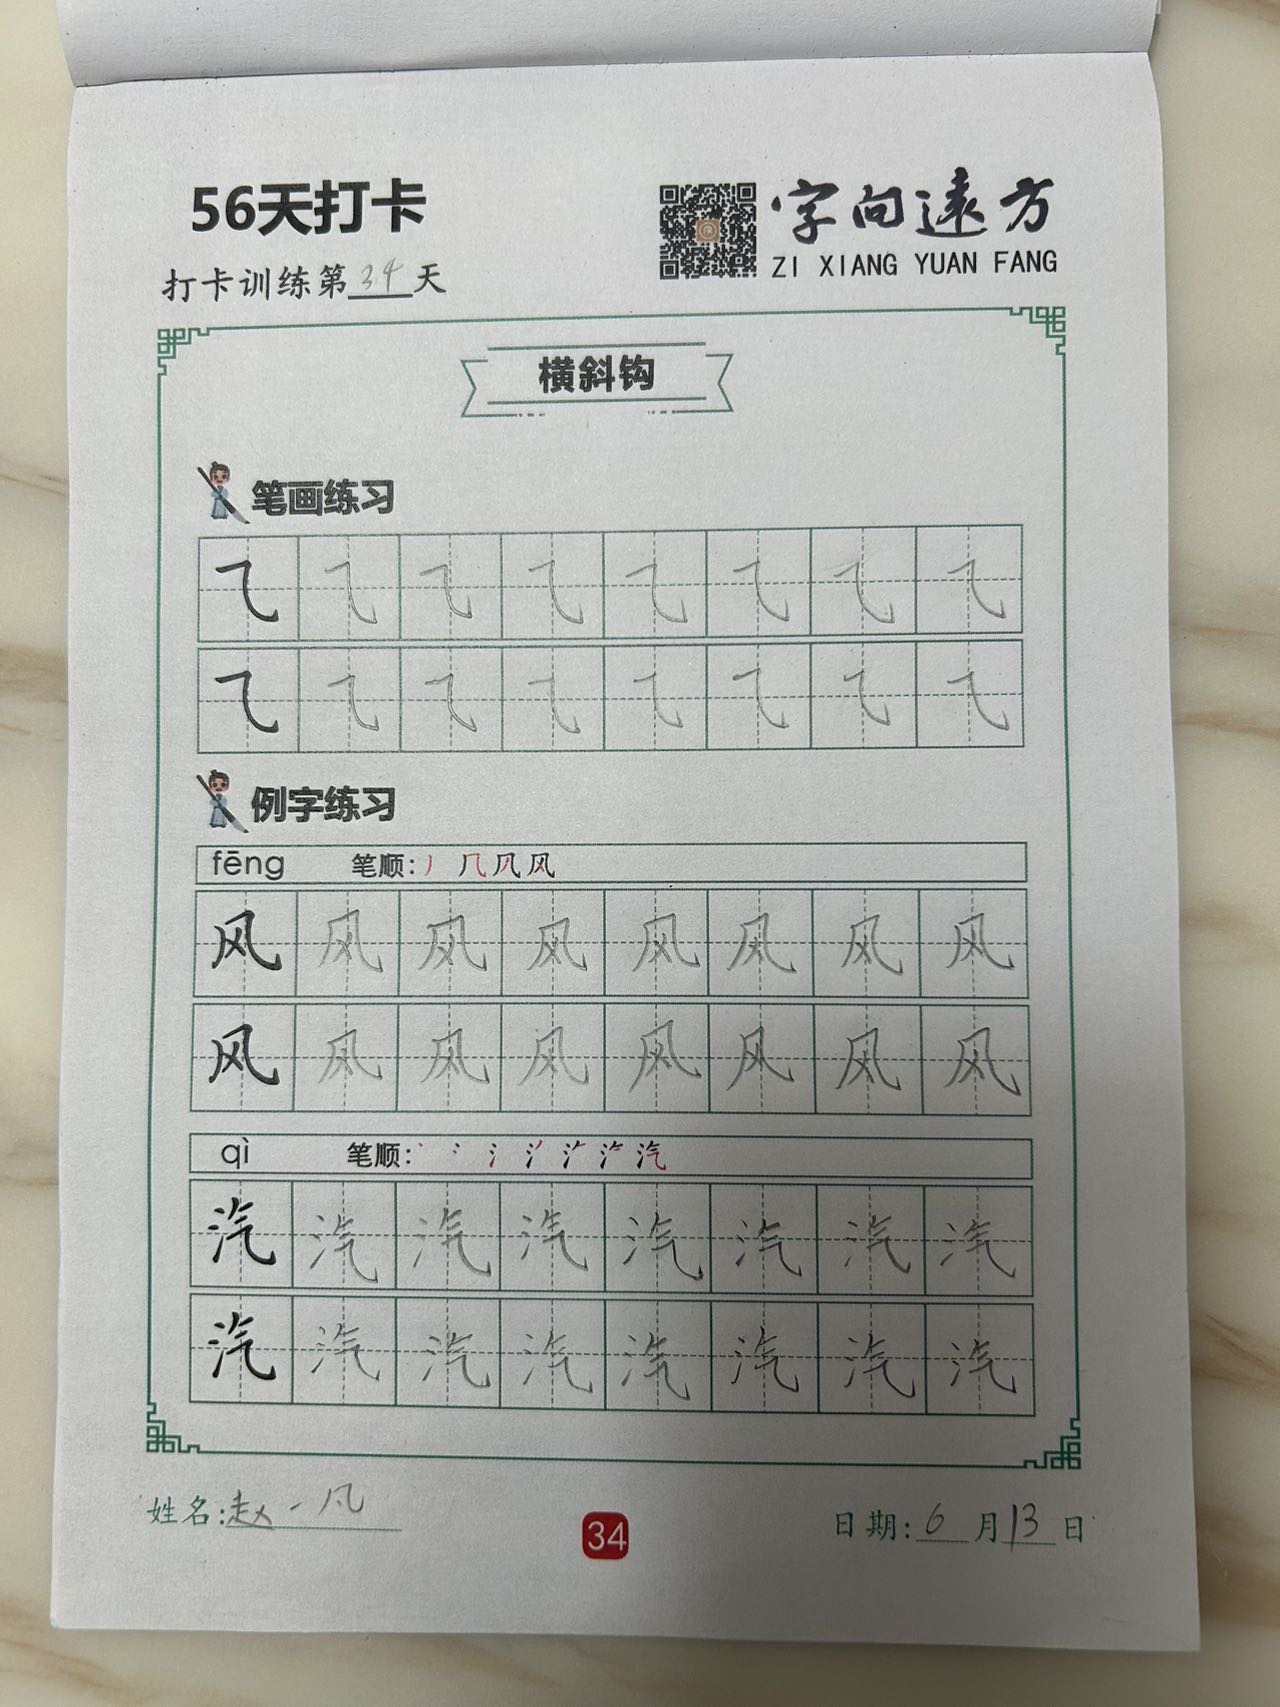 56天打卡
字向遠方
ZI XIANG YUAN FANG
打卡训练第34天
横斜钩
笔画练习
㇈ ㇈ ㇈ ㇈ ㇈ ㇈ ㇈ ㇈
㇈ ㇈ ㇈ ㇈ ㇈ ㇈ ㇈ ㇈
例字练习
fēng 笔顺: 丿 几 凤 风
风 风 风 风 风 风 风 风
风 风 风 风 风 风 风 风
qì 笔顺: 丶 冫 氵 汽
汽 汽 汽 汽 汽 汽 汽 汽
汽 汽 汽 汽 汽 汽 汽 汽
姓名:赵一凡
34
日期:6月13日